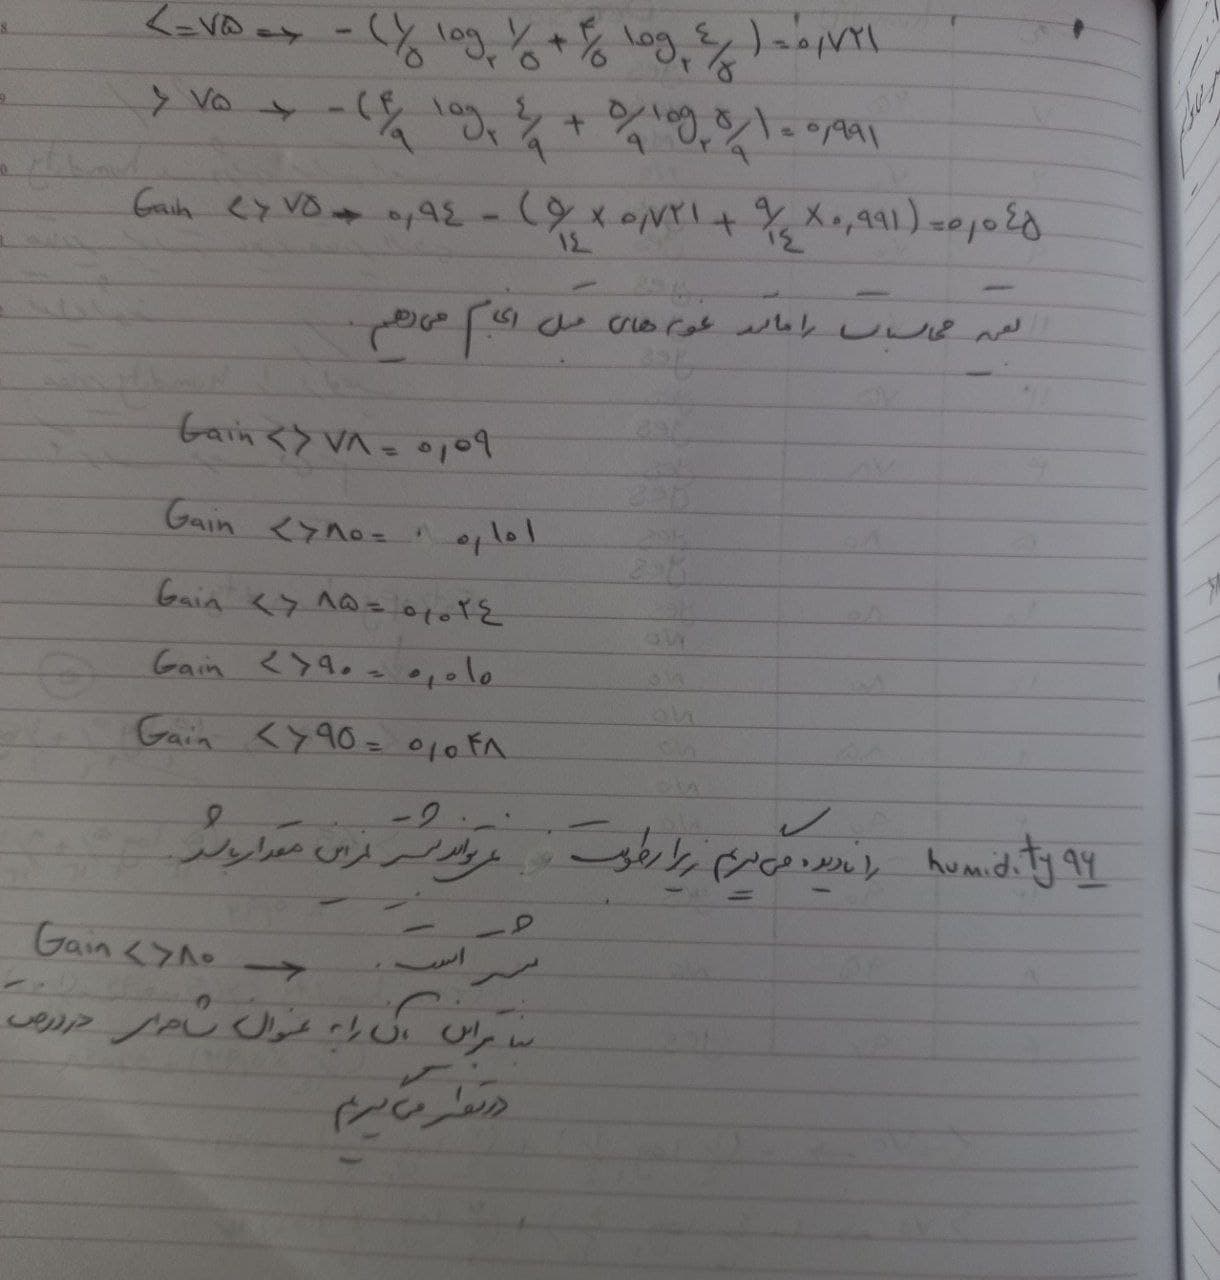 <=۷۵ => -(۱/۵ log₂ ۱/۵ + ۴/۵ log₂ ۴/۵) = ۰,۷۲۱
> ۷۵ → -(۴/۹ log₂ ۴/۹ + ۵/۹ log₂ ۵/۹) = ۰,۹۹۱
Gain <> ۷۵ → ۰,۹۴ - (۵/۱۴ × ۰,۷۲۱ + ۹/۱۴ × ۰,۹۹۱) = ۰,۰۴۵
بقیه محاسبات را مانند نمونه های قبل انجام می دهیم.
Gain <> ۷۸ = ۰,۰۹
Gain <> ۸۰ = ۰,۱۰۱
Gain <> ۸۵ = ۰,۰۲۴
Gain <> ۹۰ = ۰,۰۱۰
Gain <> ۹۵ = ۰,۰۴۸
humidity ۹۶ را نادیده می گیریم زیرا رطوبت نمی تواند بیشتر از این مقدار باشد.
Gain <> ۸۰ → بیشتر است.
بنابراین آن را به عنوان در درخت
در نظر می گیریم